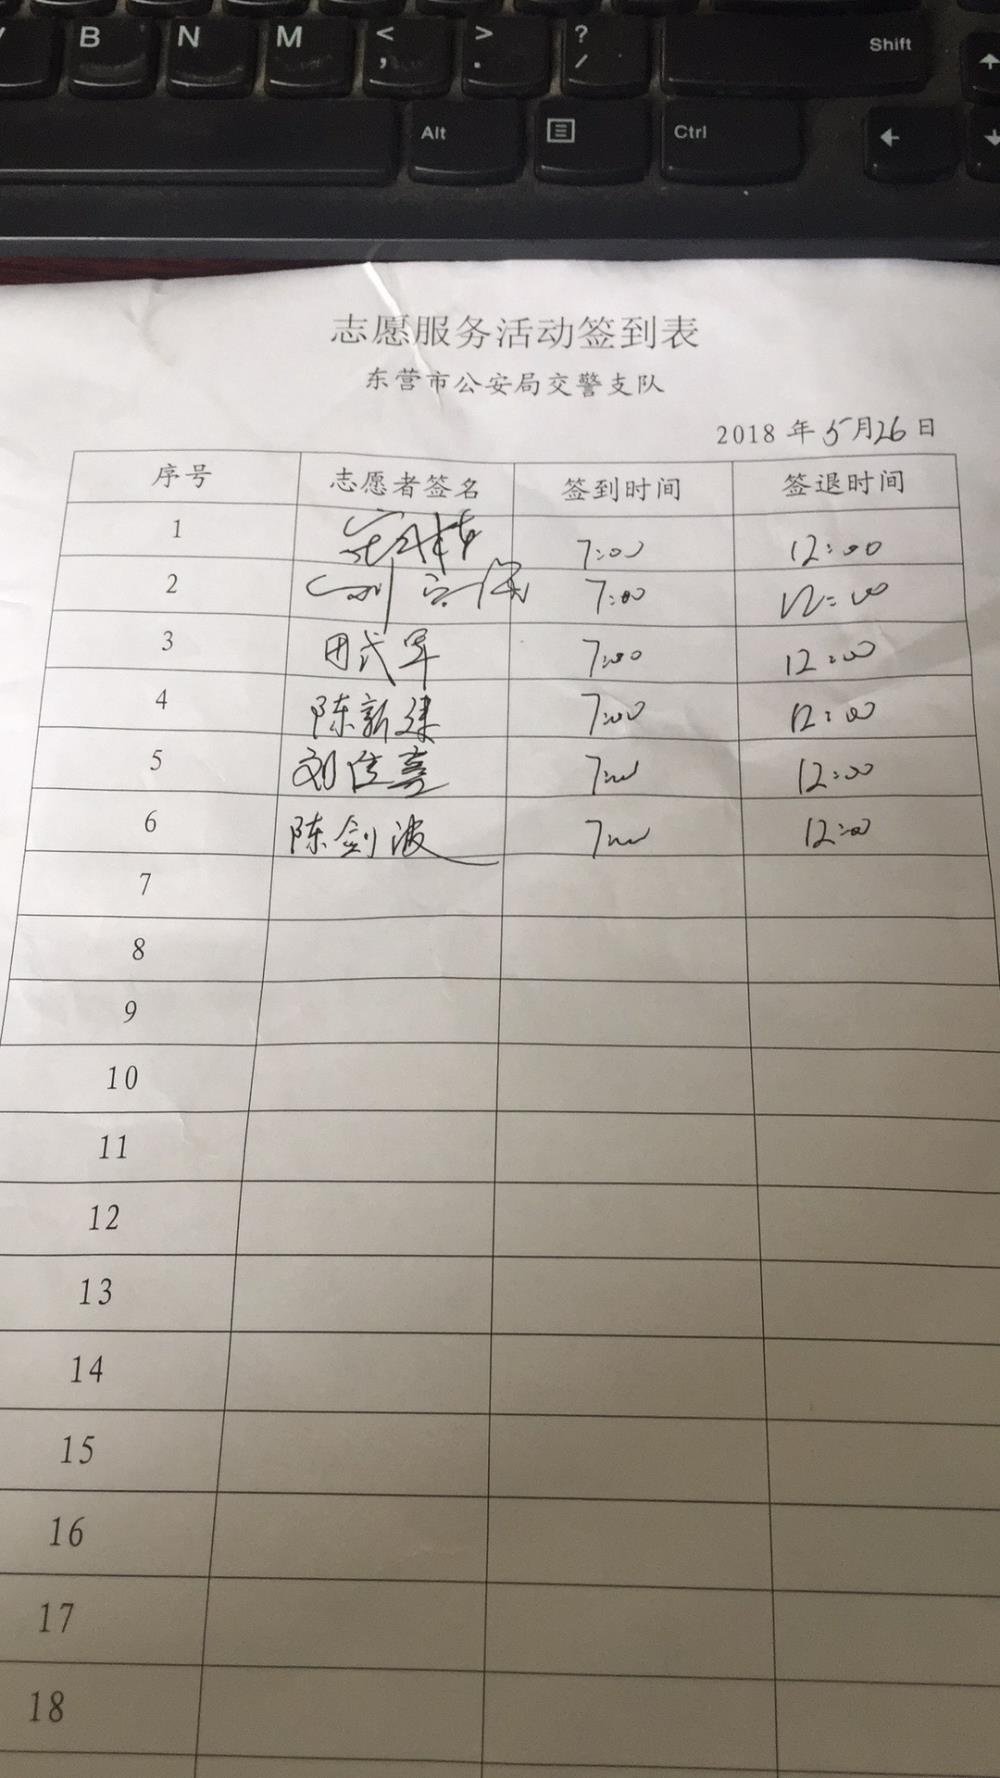 B N M < , > . ? / Shift
Alt Ctrl
志愿服务活动签到表
东营市公安局交警支队
2018 年 5月26日
序号 志愿者签名 签到时间 签退时间
1 7:00 12:00
2 7:00 12:00
3 田武军 7:00 12:00
4 陈新建 7:00 12:00
5 刘 7:00 12:00
6 陈剑波 7:00 12:00
7
8
9
10
11
12
13
14
15
16
17
18